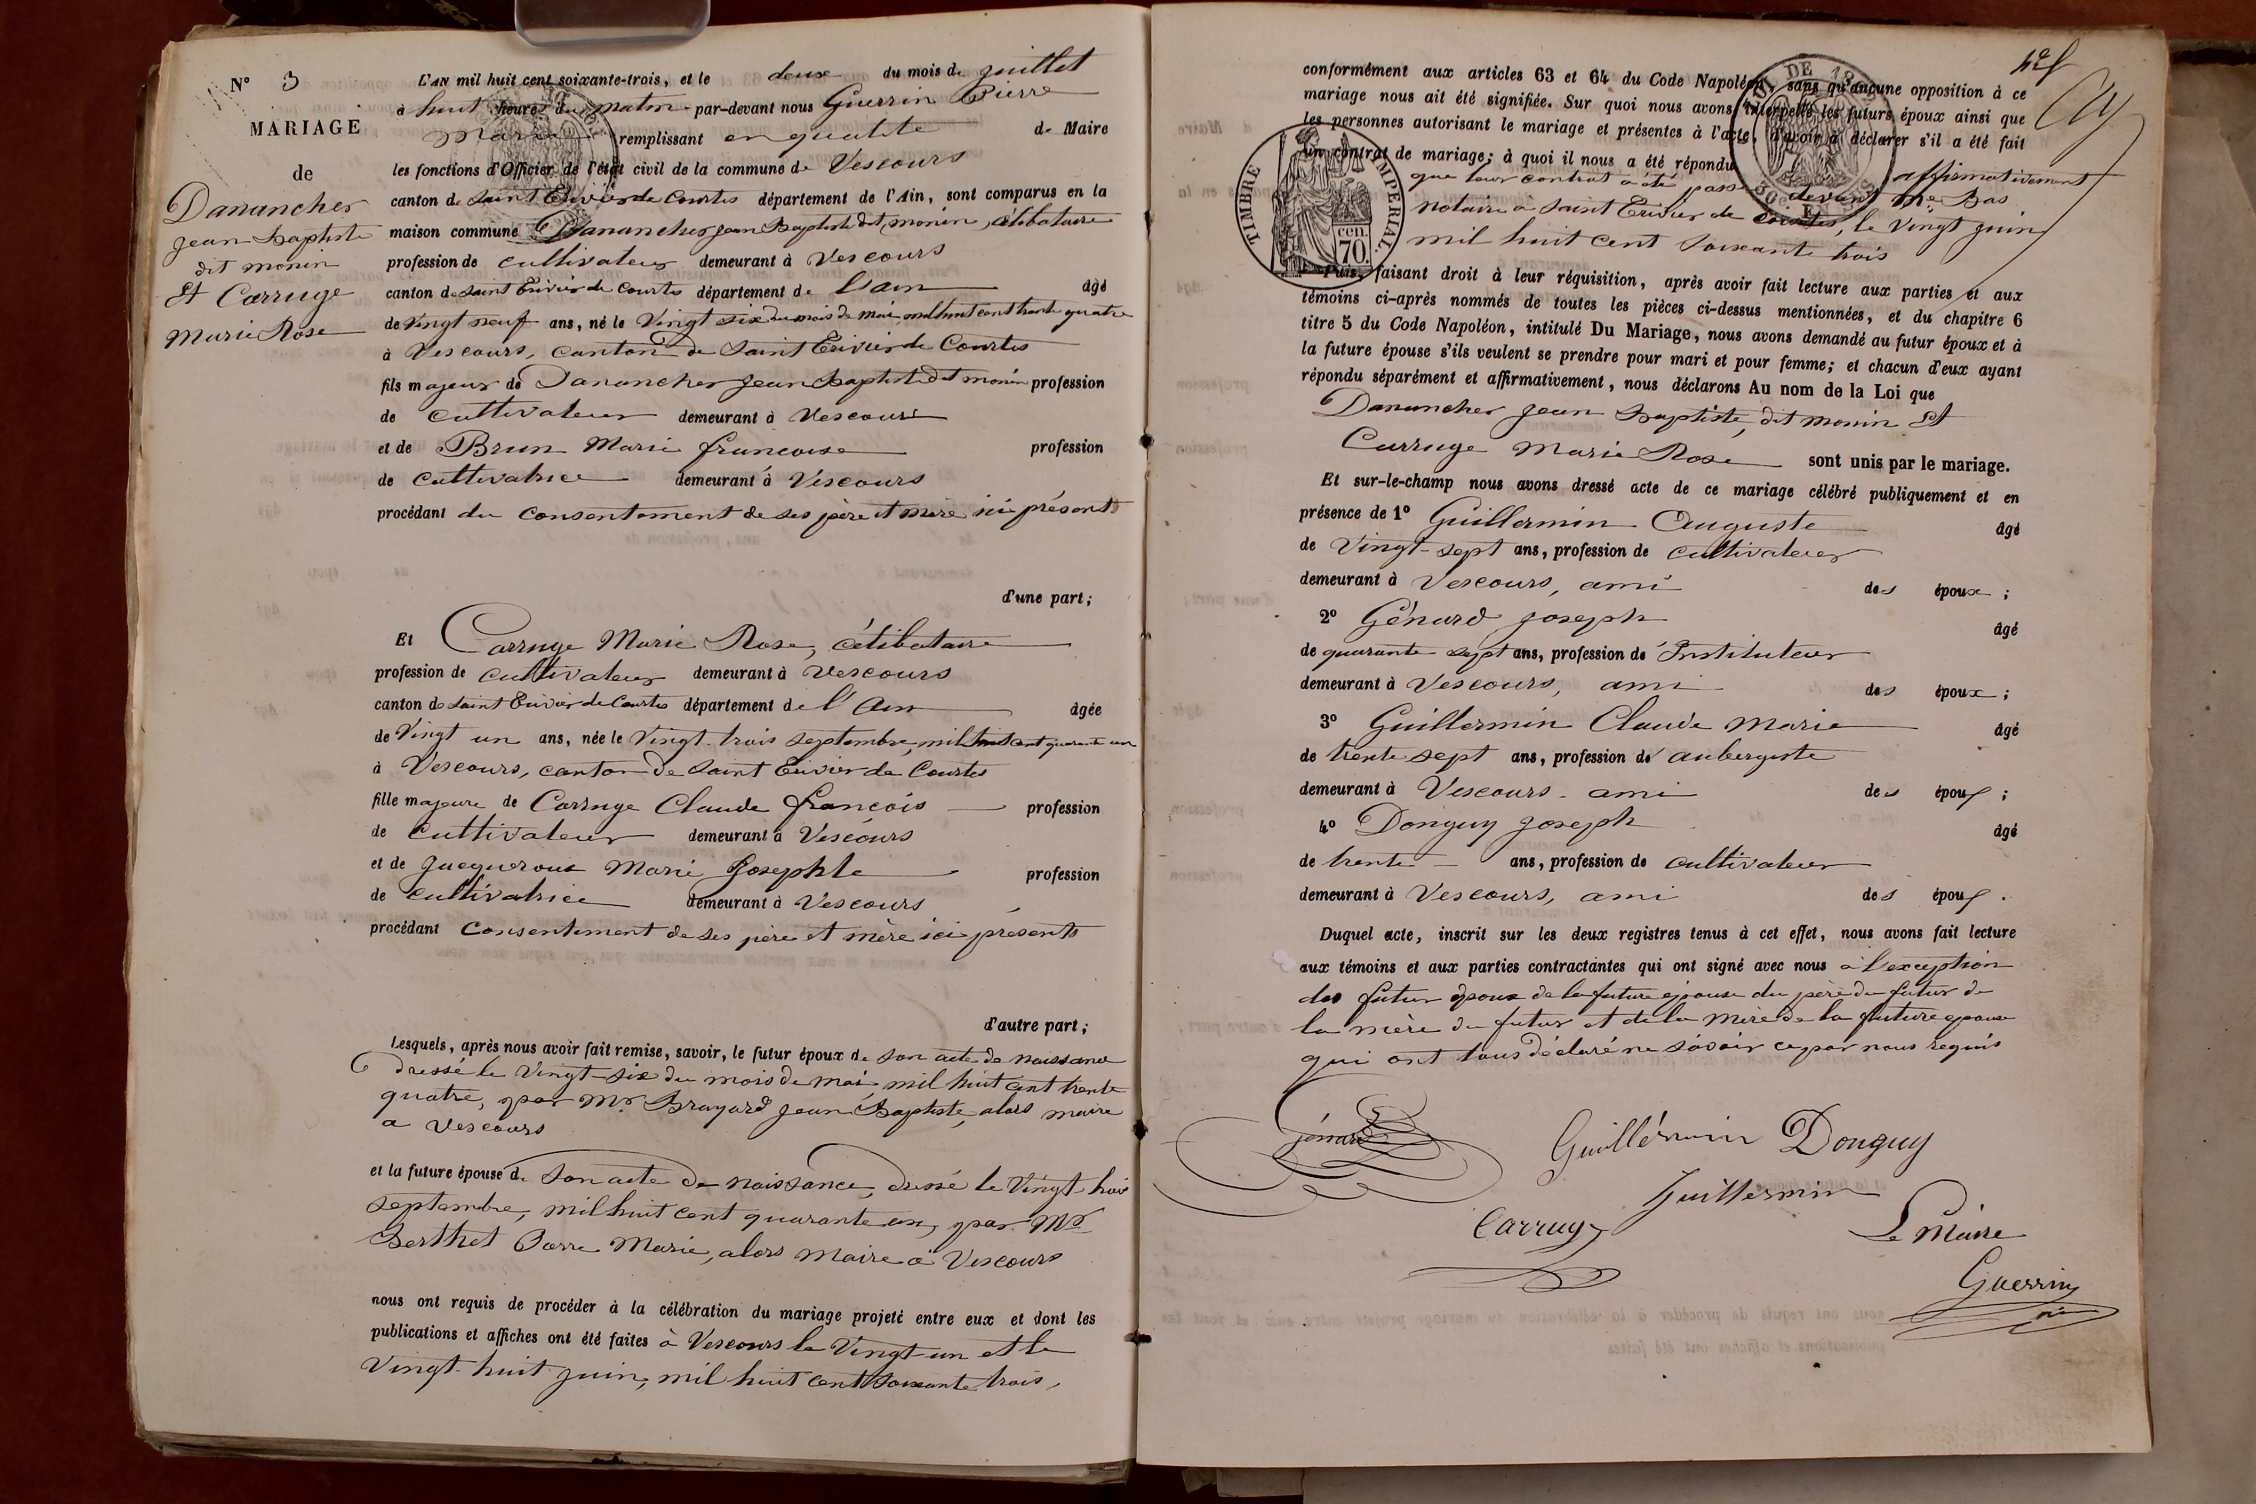 N° 3
MARIAGE
de
Danancher
Jean Baptiste
dit monin
Et Carruge
Marie Rose
L'AN mil huit cent soixante-trois, et le deux du mois de juillet
à huit heures du matin par-devant nous Guerrin Pierre
Marie remplissant en qualité de Maire
les fonctions d'Officier de l'état civil de la commune de Vescours
canton de Saint Trivier de Courtes département de l'Ain, sont comparus en la
maison commune Danancher Jean Baptiste dit monin, célibataire
profession de cultivateur demeurant à Vescours
canton de Saint Trivier de Courtes département de l'ain âgé
de Vingt neuf ans, né le Vingt six du mois de mai mil huit cent trente quatre
à Vescours, canton de Saint Trivier de Courtes
fils majeur de Danancher Jean Baptiste dit monin profession
de cultivateur demeurant à Vescours
et de Brun Marie françoise profession
de cultivatrice demeurant à Vescours
procédant du consentement de ses père et mère ici présents
d'une part;
Et Carruge Marie Rose, célibataire
profession de cultivateur demeurant à Vescours
canton de Saint Trivier de Courtes département de l'Ain âgée
de Vingt un ans, née le Vingt trois septembre, mil huit cent quarante un
à Vescours, canton de Saint Trivier de Courtes
fille majeure de Carruge Claude françois profession
de cultivateur demeurant à Vescours
et de Jacqueroux Marie Josephte profession
de cultivatrice demeurant à Vescours
procédant consentement de ses père et mère ici présents
d'autre part;
Lesquels, après nous avoir fait remise, savoir, le futur époux de son acte de naissance
dressé le Vingt-six du mois de mai mil huit cent trente
quatre, par Mr. Brayard Jean Baptiste, alors maire
a Vescours
et la future épouse de son acte de naissance, dressé le Vingt trois
septembre, mil huit cent quarante un, par Mr
Berthet Pierre Marie, alors Maire à Vescours
nous ont requis de procéder à la célébration du mariage projeté entre eux et dont les
publications et affiches ont été faites à Vescours le Vingt un et le
Vingt huit juin, mil huit cent soixante trois,
conformément aux articles 63 et 64 du Code Napoléon, sans qu'aucune opposition à ce
mariage nous ait été signifiée. Sur quoi nous avons interpellé les futurs époux ainsi que
les personnes autorisant le mariage et présentes à l'acte, d'avoir à déclarer s'il a été fait
un contrat de mariage; à quoi il nous a été répondu affirmativement
que leur contrat a été passé devant Me Bas
notaire a Saint Trivier de Courtes, le Vingt juin
mil huit cent soixante trois
TIMBRE IMPERIAL
cen. 70.
Puis, faisant droit à leur réquisition, après avoir fait lecture aux parties et aux
témoins ci-après nommés de toutes les pièces ci-dessus mentionnées, et du chapitre 6
titre 5 du Code Napoléon, intitulé Du Mariage, nous avons demandé au futur époux et à
la future épouse s'ils veulent se prendre pour mari et pour femme; et chacun d'eux ayant
répondu séparément et affirmativement, nous déclarons Au nom de la Loi que
Danancher Jean Baptiste, dit monin Et
Carruge Marie Rose sont unis par le mariage.
Et sur-le-champ nous avons dressé acte de ce mariage célébré publiquement et en
présence de 1° Guillermin Auguste âgé
de Vingt-sept ans, profession de cultivateur
demeurant à Vescours, ami des époux;
2° Génard Joseph âgé
de quarante sept ans, profession de Instituteur
demeurant à Vescours, ami des époux;
3° Guillermin Claude Marie âgé
de trente sept ans, profession de aubergiste
demeurant à Vescours. ami des époux;
4° Donguy Joseph âgé
de trente ans, profession de cultivateur
demeurant à Vescours, ami des époux.
Duquel acte, inscrit sur les deux registres tenus à cet effet, nous avons fait lecture
aux témoins et aux parties contractantes qui ont signé avec nous à l'exception
des futur époux de la future épouse du père du futur de
la mère du futur et de la mère de la future epouse
qui ont tous déclaré ne savoir ce par nous requis
Génard
Guillérmin Donguy
Guillermin
Carruge
Le Maire
Guerrin